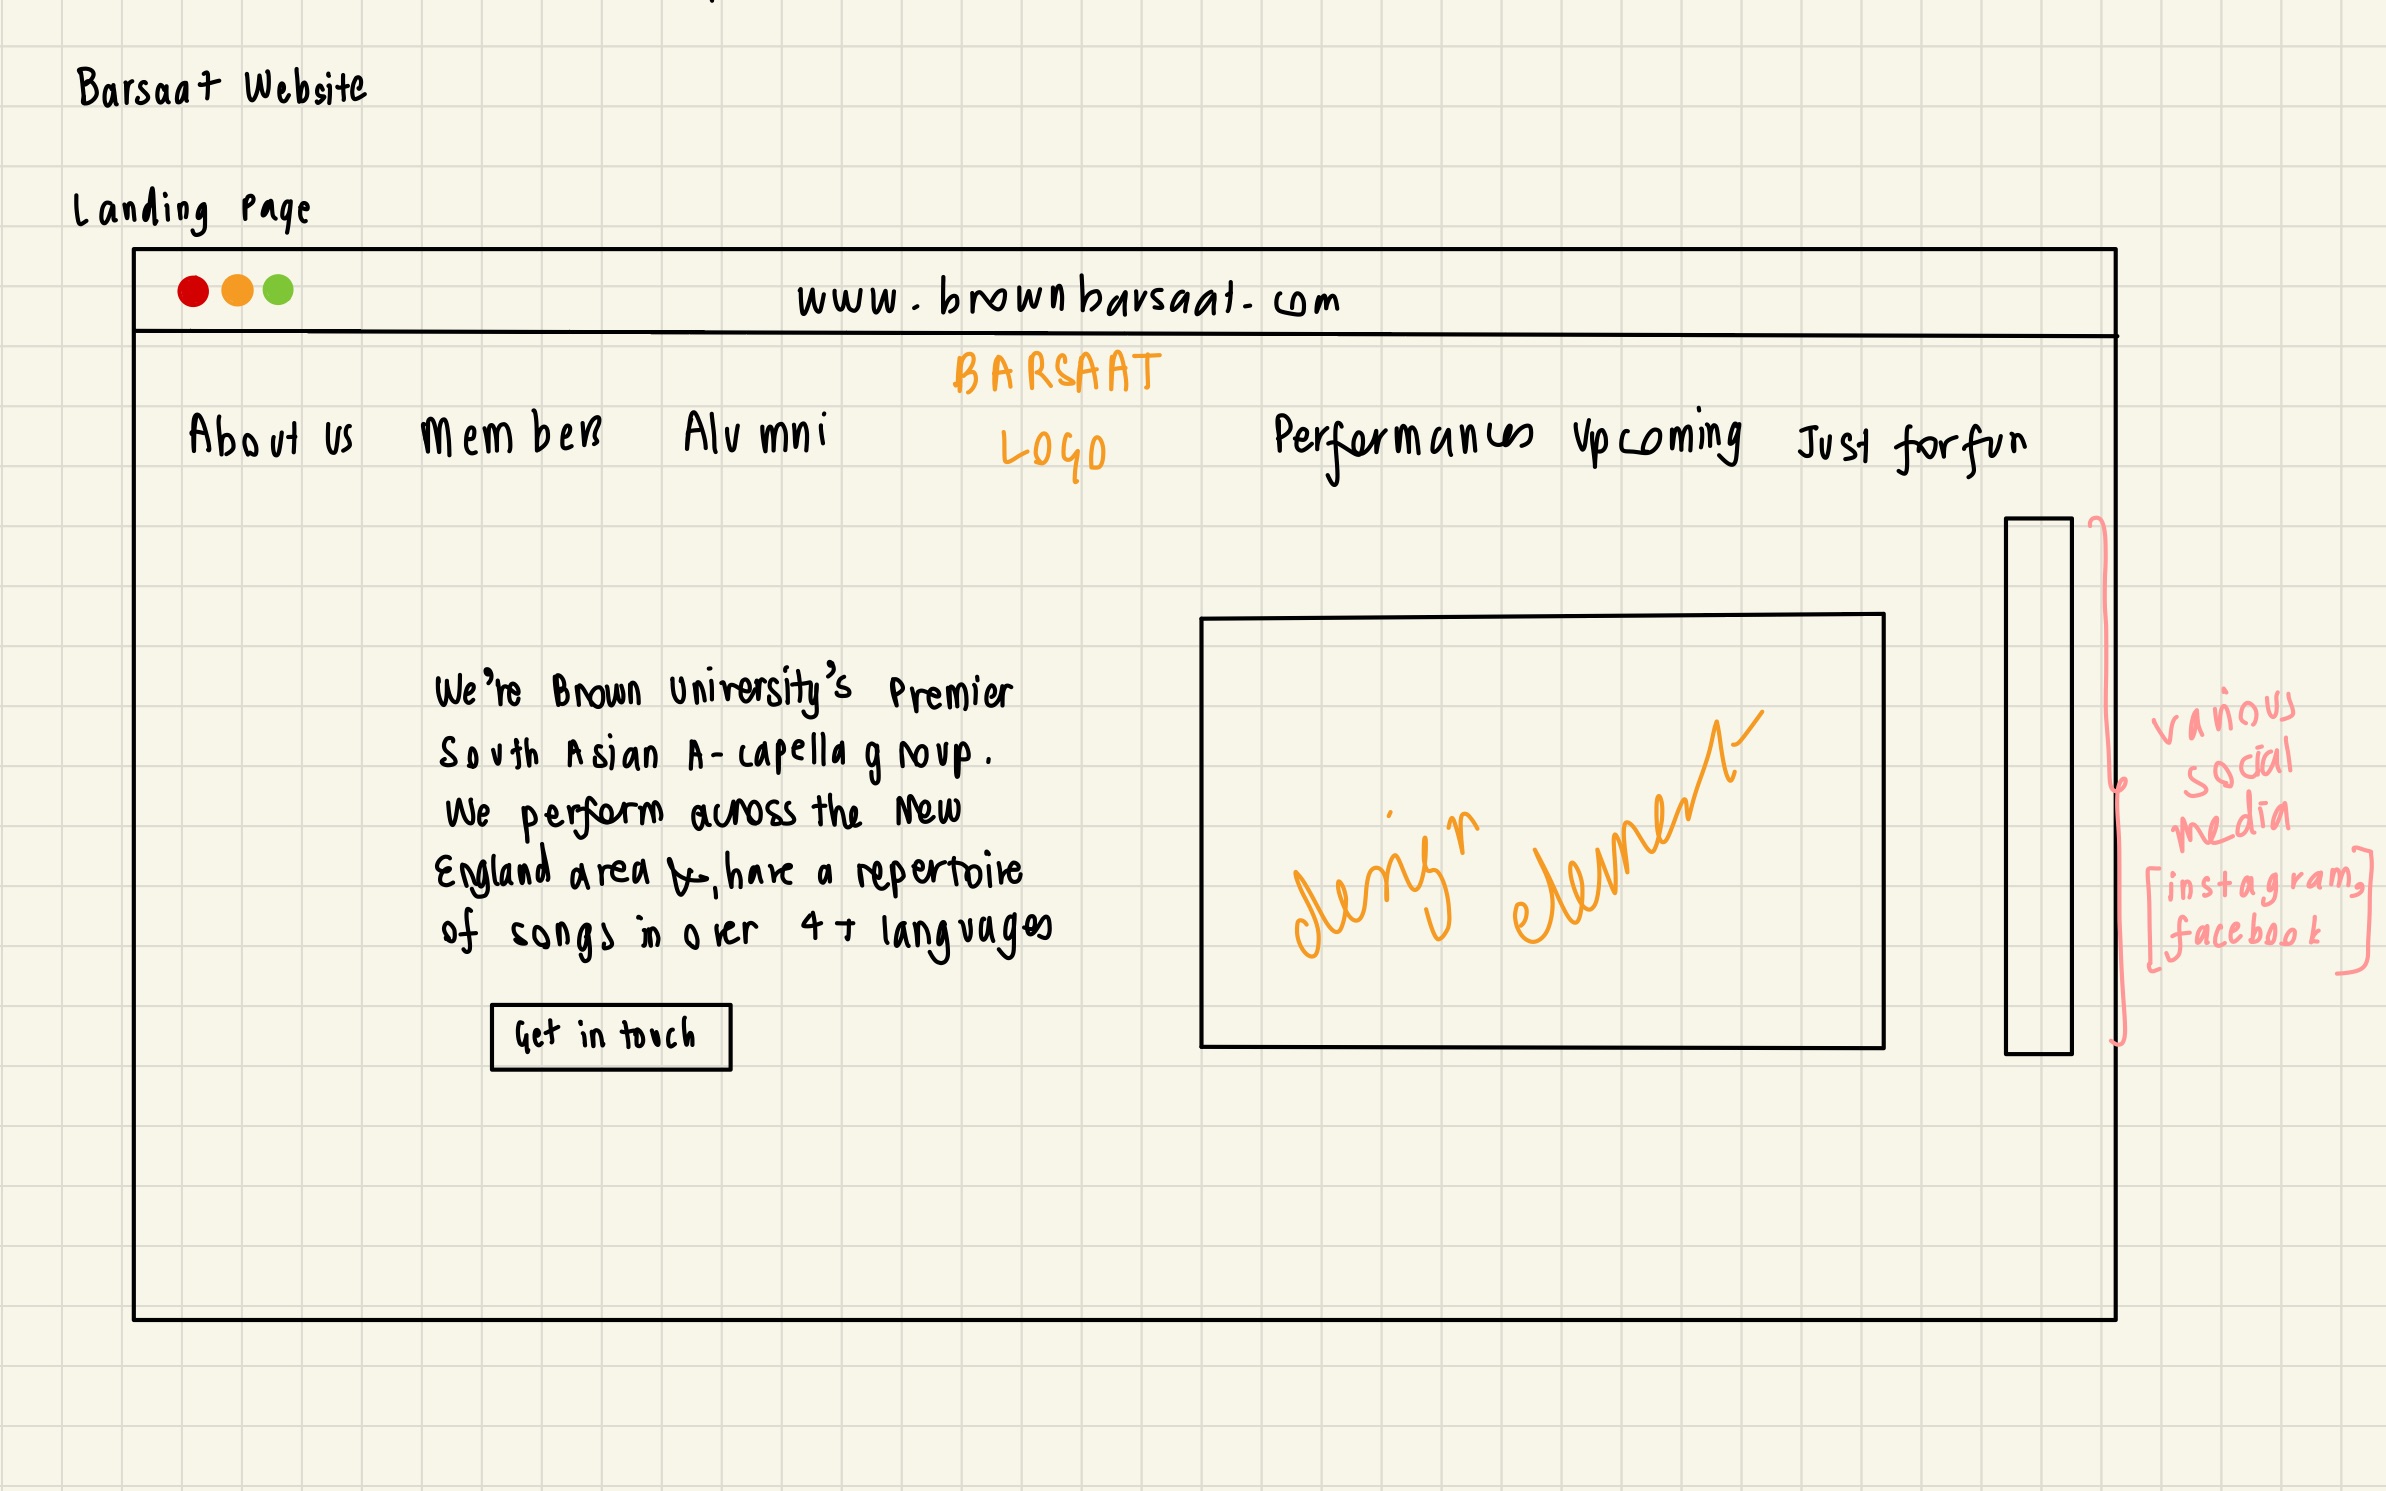 Barsaat Website
Landing Page
www.brownbarsaat.com
BARSAAT
LOGO
About us Members Alumni Performances Upcoming Just for fun
We're Brown University's Premier
South Asian A-capella group.
We perform across the New
England area &, have a repertoire
of songs in over 4+ languages
Get in touch
design element
various
social
media
[instagram,
facebook]